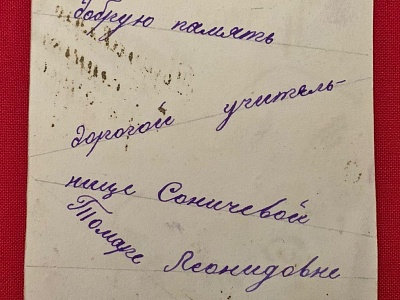 добрую память
дорогой учитель-
нице Соничевой
Тамаре Леонидовне